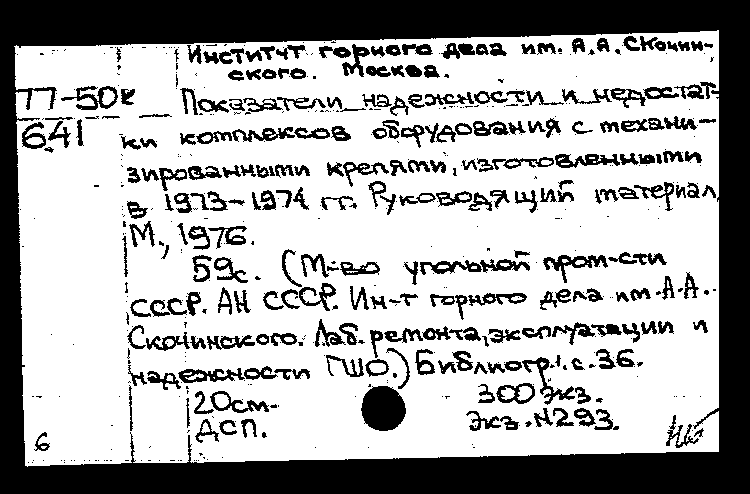 Институт горного дела им. А.А. Скочин-
ского. Москва.
77-50к
641
Показатели надежности и недостат-
ки комплексов оборудования с механи-
зированными крепями, изготовленными
в 1973-1974 гг. Руководящий материал,
М., 1976.
59с. (М-во угольной пром-сти
СССР. АН СССР. Ин-т горного дела им. А.А.
Скочинского. Лаб. ремонта, эксплуатации и
надежности ГШО.) Библиогр.: с. 36.
20см. 300 экз.
ДСП. Экз. N293.
6